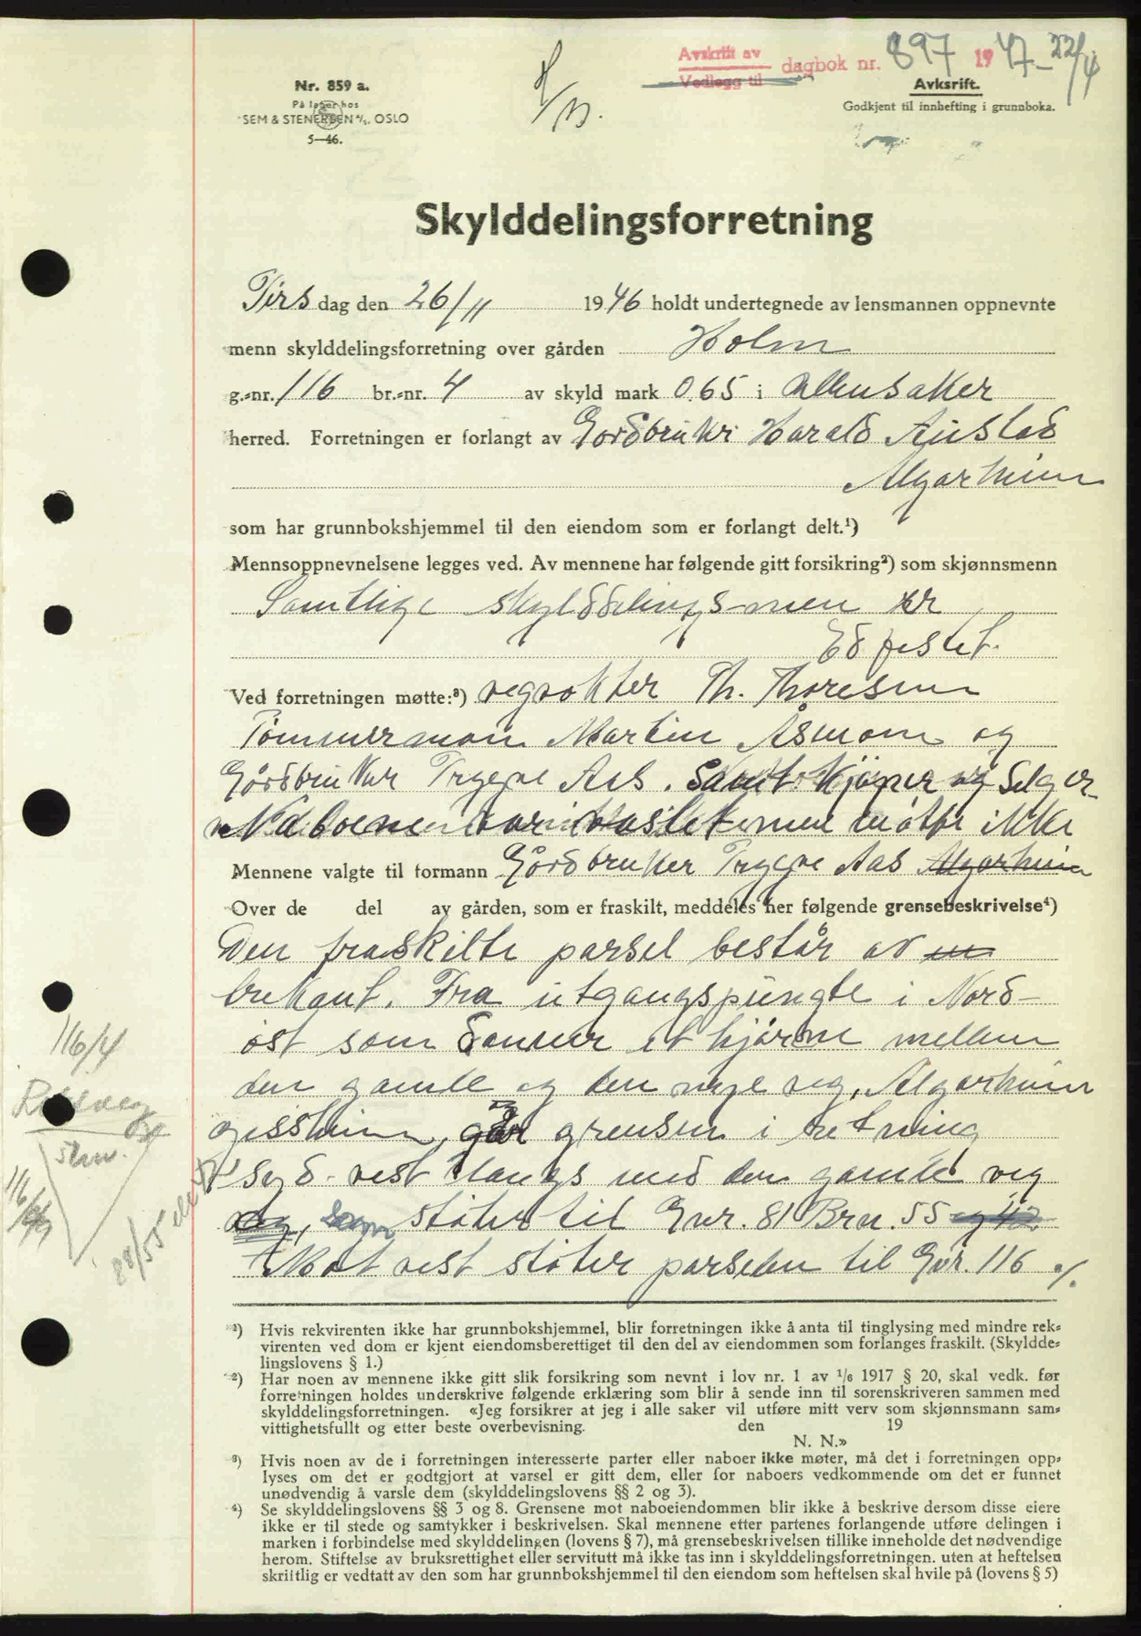 Avskrift av
Vedlegg til
dagbok nr. 897 1947 - 22/4
Nr. 859 a.
På lager hos
SEM & STENERSEN A/S. OSLO
5—46.
Avksrift.
Godkjent til innhefting i grunnboka.
Skylddelingsforretning
Tirs dag den 26/11 1946 holdt undertegnede av lensmannen oppnevnte
menn skylddelingsforretning over gården Holm
g.-nr. 116 br.-nr. 4 av skyld mark 0,65 i Ullensaker
herred. Forretningen er forlangt av Gårdbruker Harald Austad
Algarheim
som har grunnbokshjemmel til den eiendom som er forlangt delt.¹)
Mennsoppnevnelsene legges ved. Av mennene har følgende gitt forsikring²) som skjønnsmenn
Samtlige skylddelingsmen er
Edfestet.
Ved forretningen møtte:³) vegvokter Th. Thoresen
Tømmermann Martin Åsmom og
Gårdbruker Trygve Aas. Samt Kjøper og Selger
Naboene var varslet men møtte ikke
Mennene valgte til formann Gårdbruker Trygve Aas Algarheim
Over de del av gården, som er fraskilt, meddeles her følgende grensebeskrivelse⁴)
Den fraskilte parsel består av en
trekant. Fra utgangspungte i Nord-
øst som danner et hjørne mellem
den gamle og den nye veg, Algarheim
Jessheim, går grensen i retning
Syd-vest langs med den gamle veg
veg, som støter til Gnr. 81 Brn. 55 og 42
Mot vest støter parselen til Gnr. 116 ./.
116/4
¹) Hvis rekvirenten ikke har grunnbokshjemmel, blir forretningen ikke å anta til tinglysing med mindre rek-
virenten ved dom er kjent eiendomsberettiget til den del av eiendommen som forlanges fraskilt. (Skyldde-
lingslovens § 1.)
²) Har noen av mennene ikke gitt slik forsikring som nevnt i lov nr. 1 av 1/6 1917 § 20, skal vedk. før
forretningen holdes underskrive følgende erklæring som blir å sende inn til sorenskriveren sammen med
skylddelingsforretningen. «Jeg forsikrer at jeg i alle saker vil utføre mitt verv som skjønnsmann sam-
vittighetsfullt og etter beste overbevisning. den 19
N. N.»
³) Hvis noen av de i forretningen interesserte parter eller naboer ikke møter, må det i forretningen opp-
lyses om det er godtgjort at varsel er gitt dem, eller for naboers vedkommende om det er funnet
unødvendig å varsle dem (skylddelingslovens §§ 2 og 3).
⁴) Se skylddelingslovens §§ 3 og 8. Grensene mot naboeiendommen blir ikke å beskrive dersom disse eiere
ikke er til stede og samtykker i beskrivelsen. Skal mennene etter partenes forlangende utføre delingen i
marken i forbindelse med skylddelingen (lovens § 7), må grensebeskrivelsen tillike inneholde det nødvendige
herom. Stiftelse av bruksrettighet eller servitutt må ikke tas inn i skylddelingsforretningen. uten at heftelsen
skriftlig er vedtatt av den som har grunnbokshjemmel til den eiendom som heftelsen skal hvile på (lovens § 5)